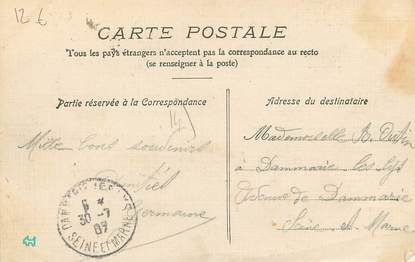 12 €
CARTE POSTALE
Tous les pays étrangers n'acceptent pas la correspondance au recto
(se renseigner à la poste)
Partie réservée à la Correspondance
Adresse du destinataire
Mille bons souvenirs
Germaine
Mademoiselle B.
à Dammarie les Lys
Avenue de Dammarie
Seine et Marne
30 -7
07
SEINE ET MARNE